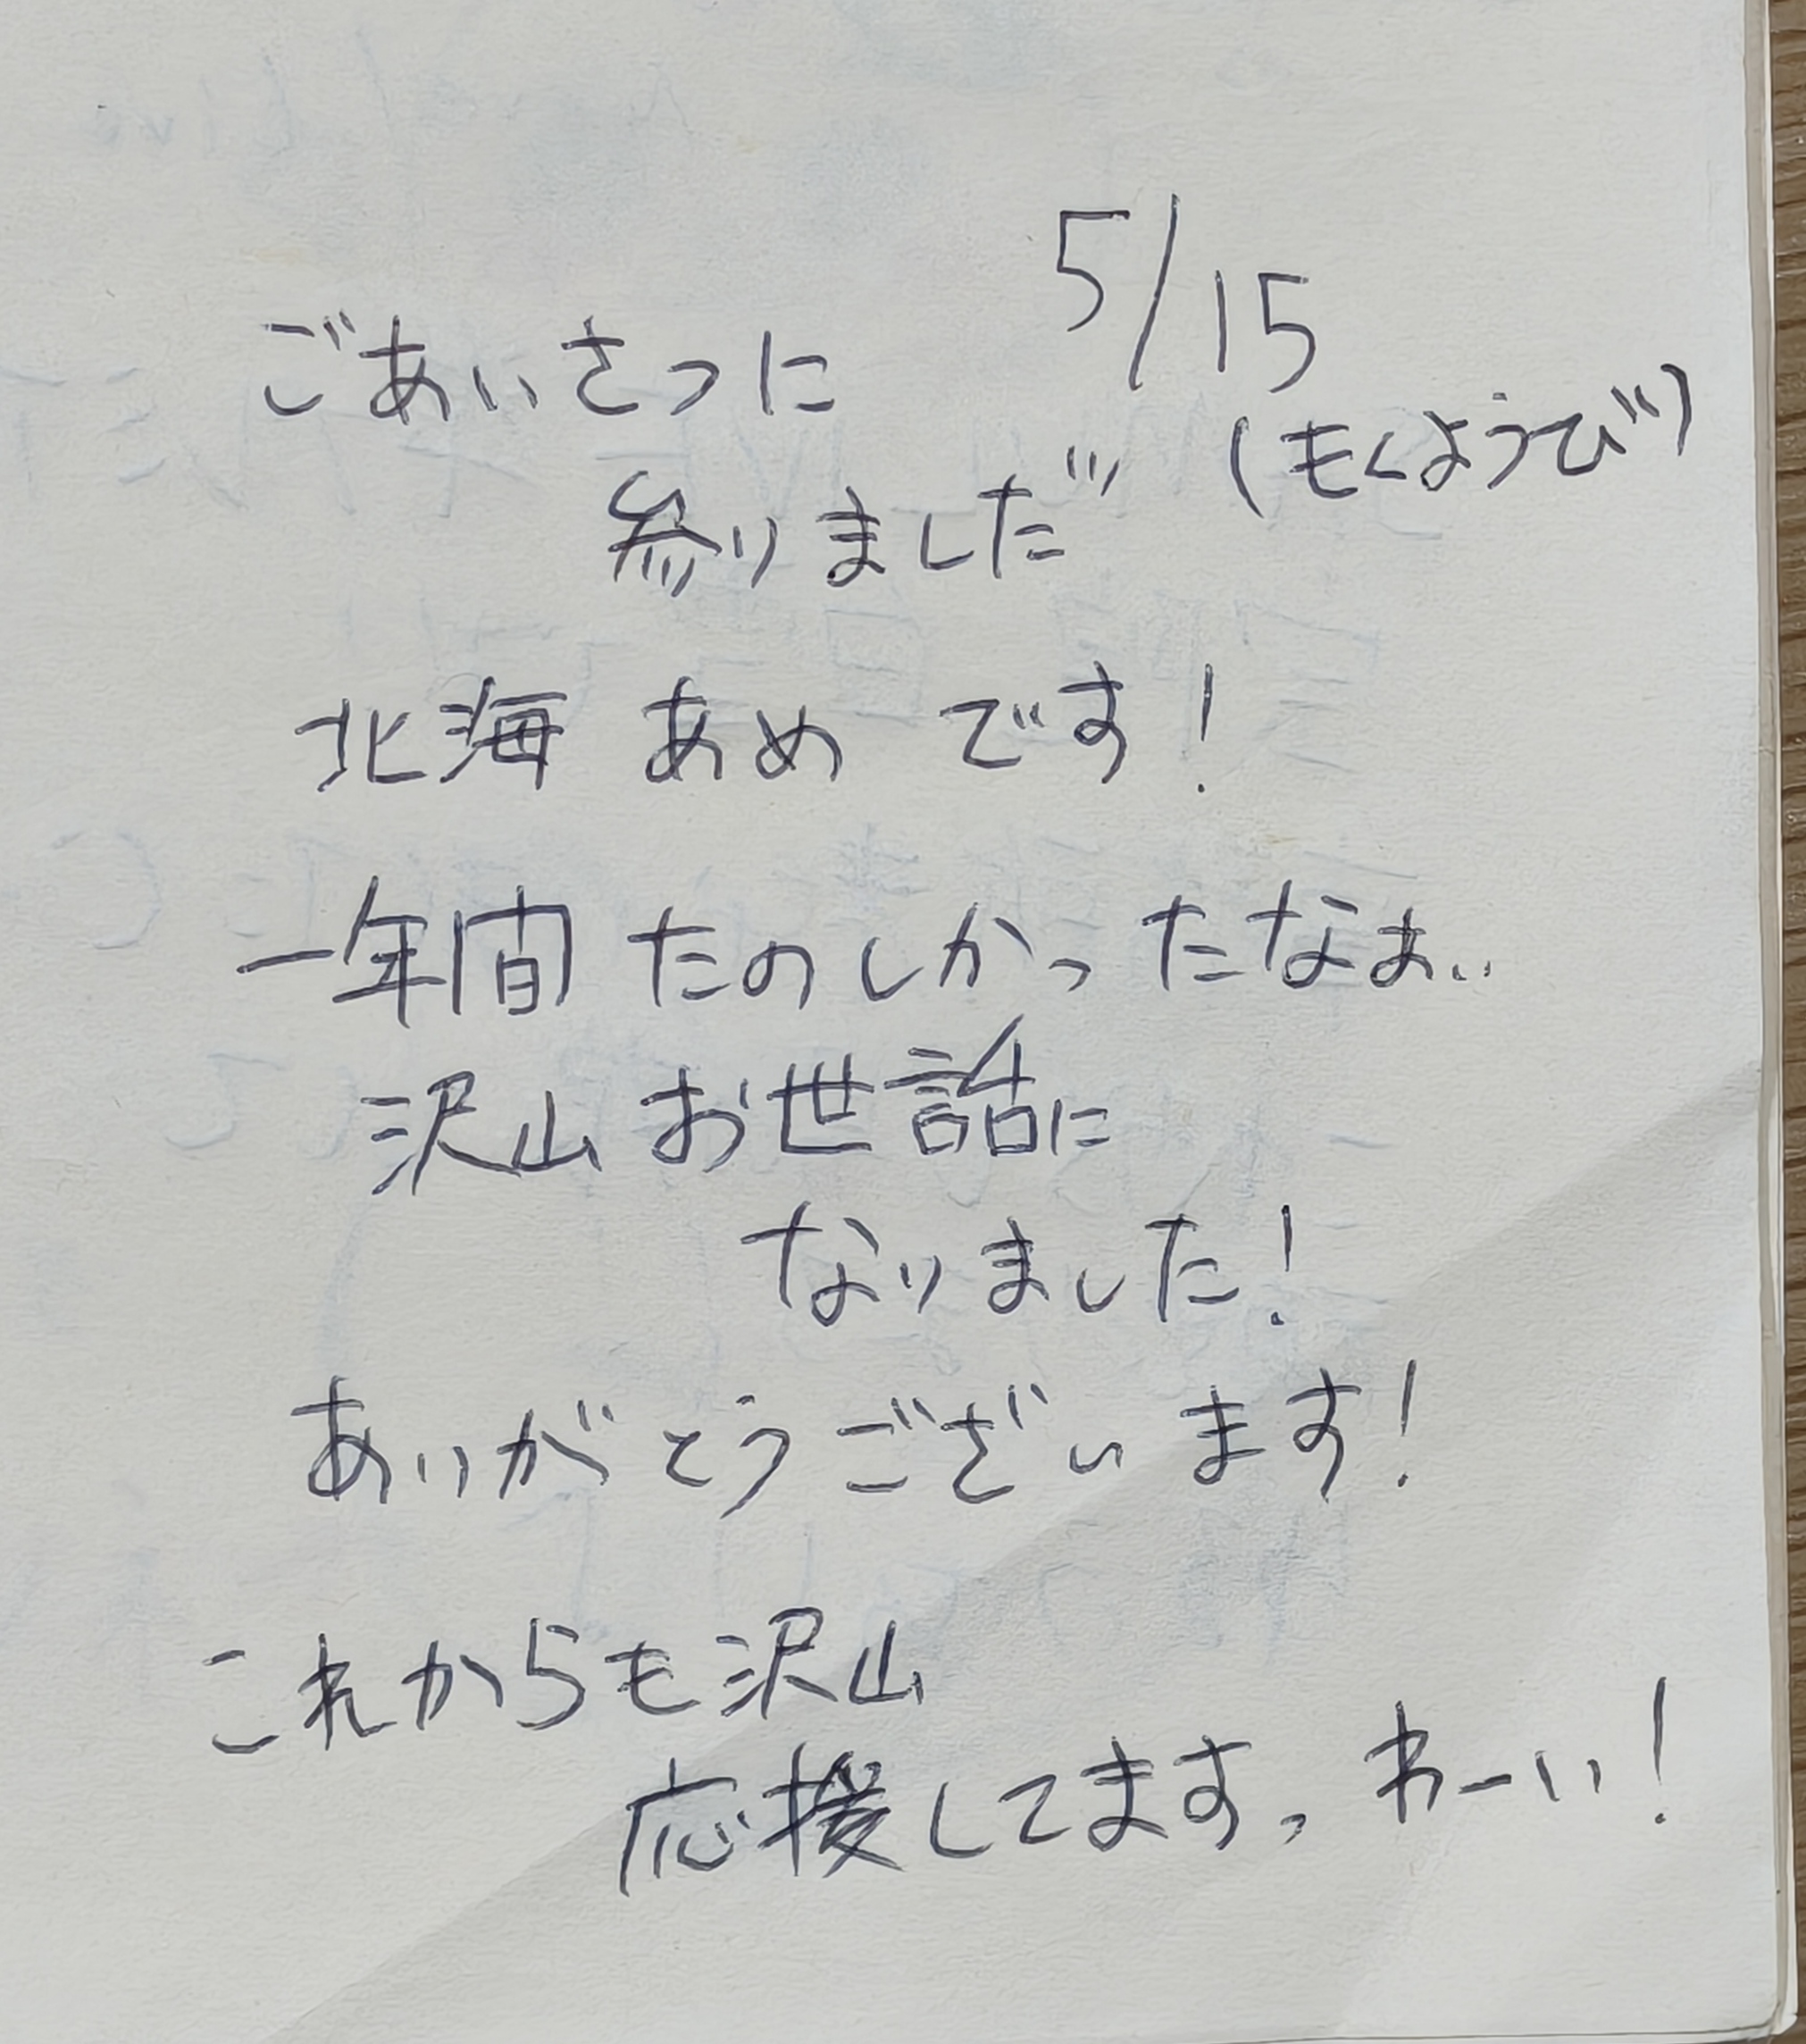 5/15
(もくようび)
ごあいさつに
参りました
北海 あめ です!
一年間 たのしかったなぁ..
沢山お世話に
なりました!
ありがとうございます!
これからも沢山
応援してます、わーい!